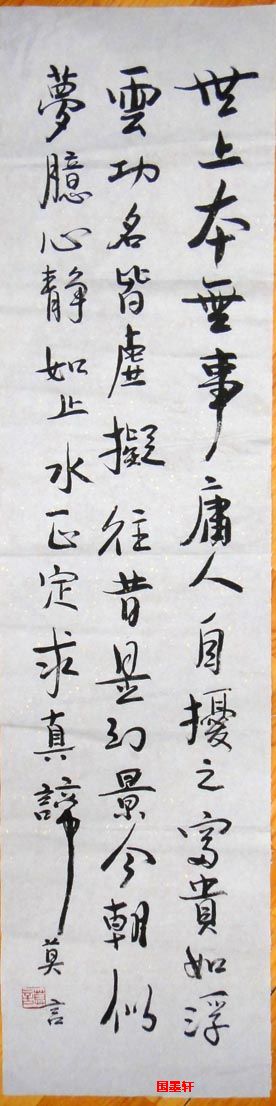 世上本無事庸人自擾之富貴如浮
雲功名皆虛擬往昔是幻景今朝似
夢臆心静如止水正定求真諦
莫言
国墨轩